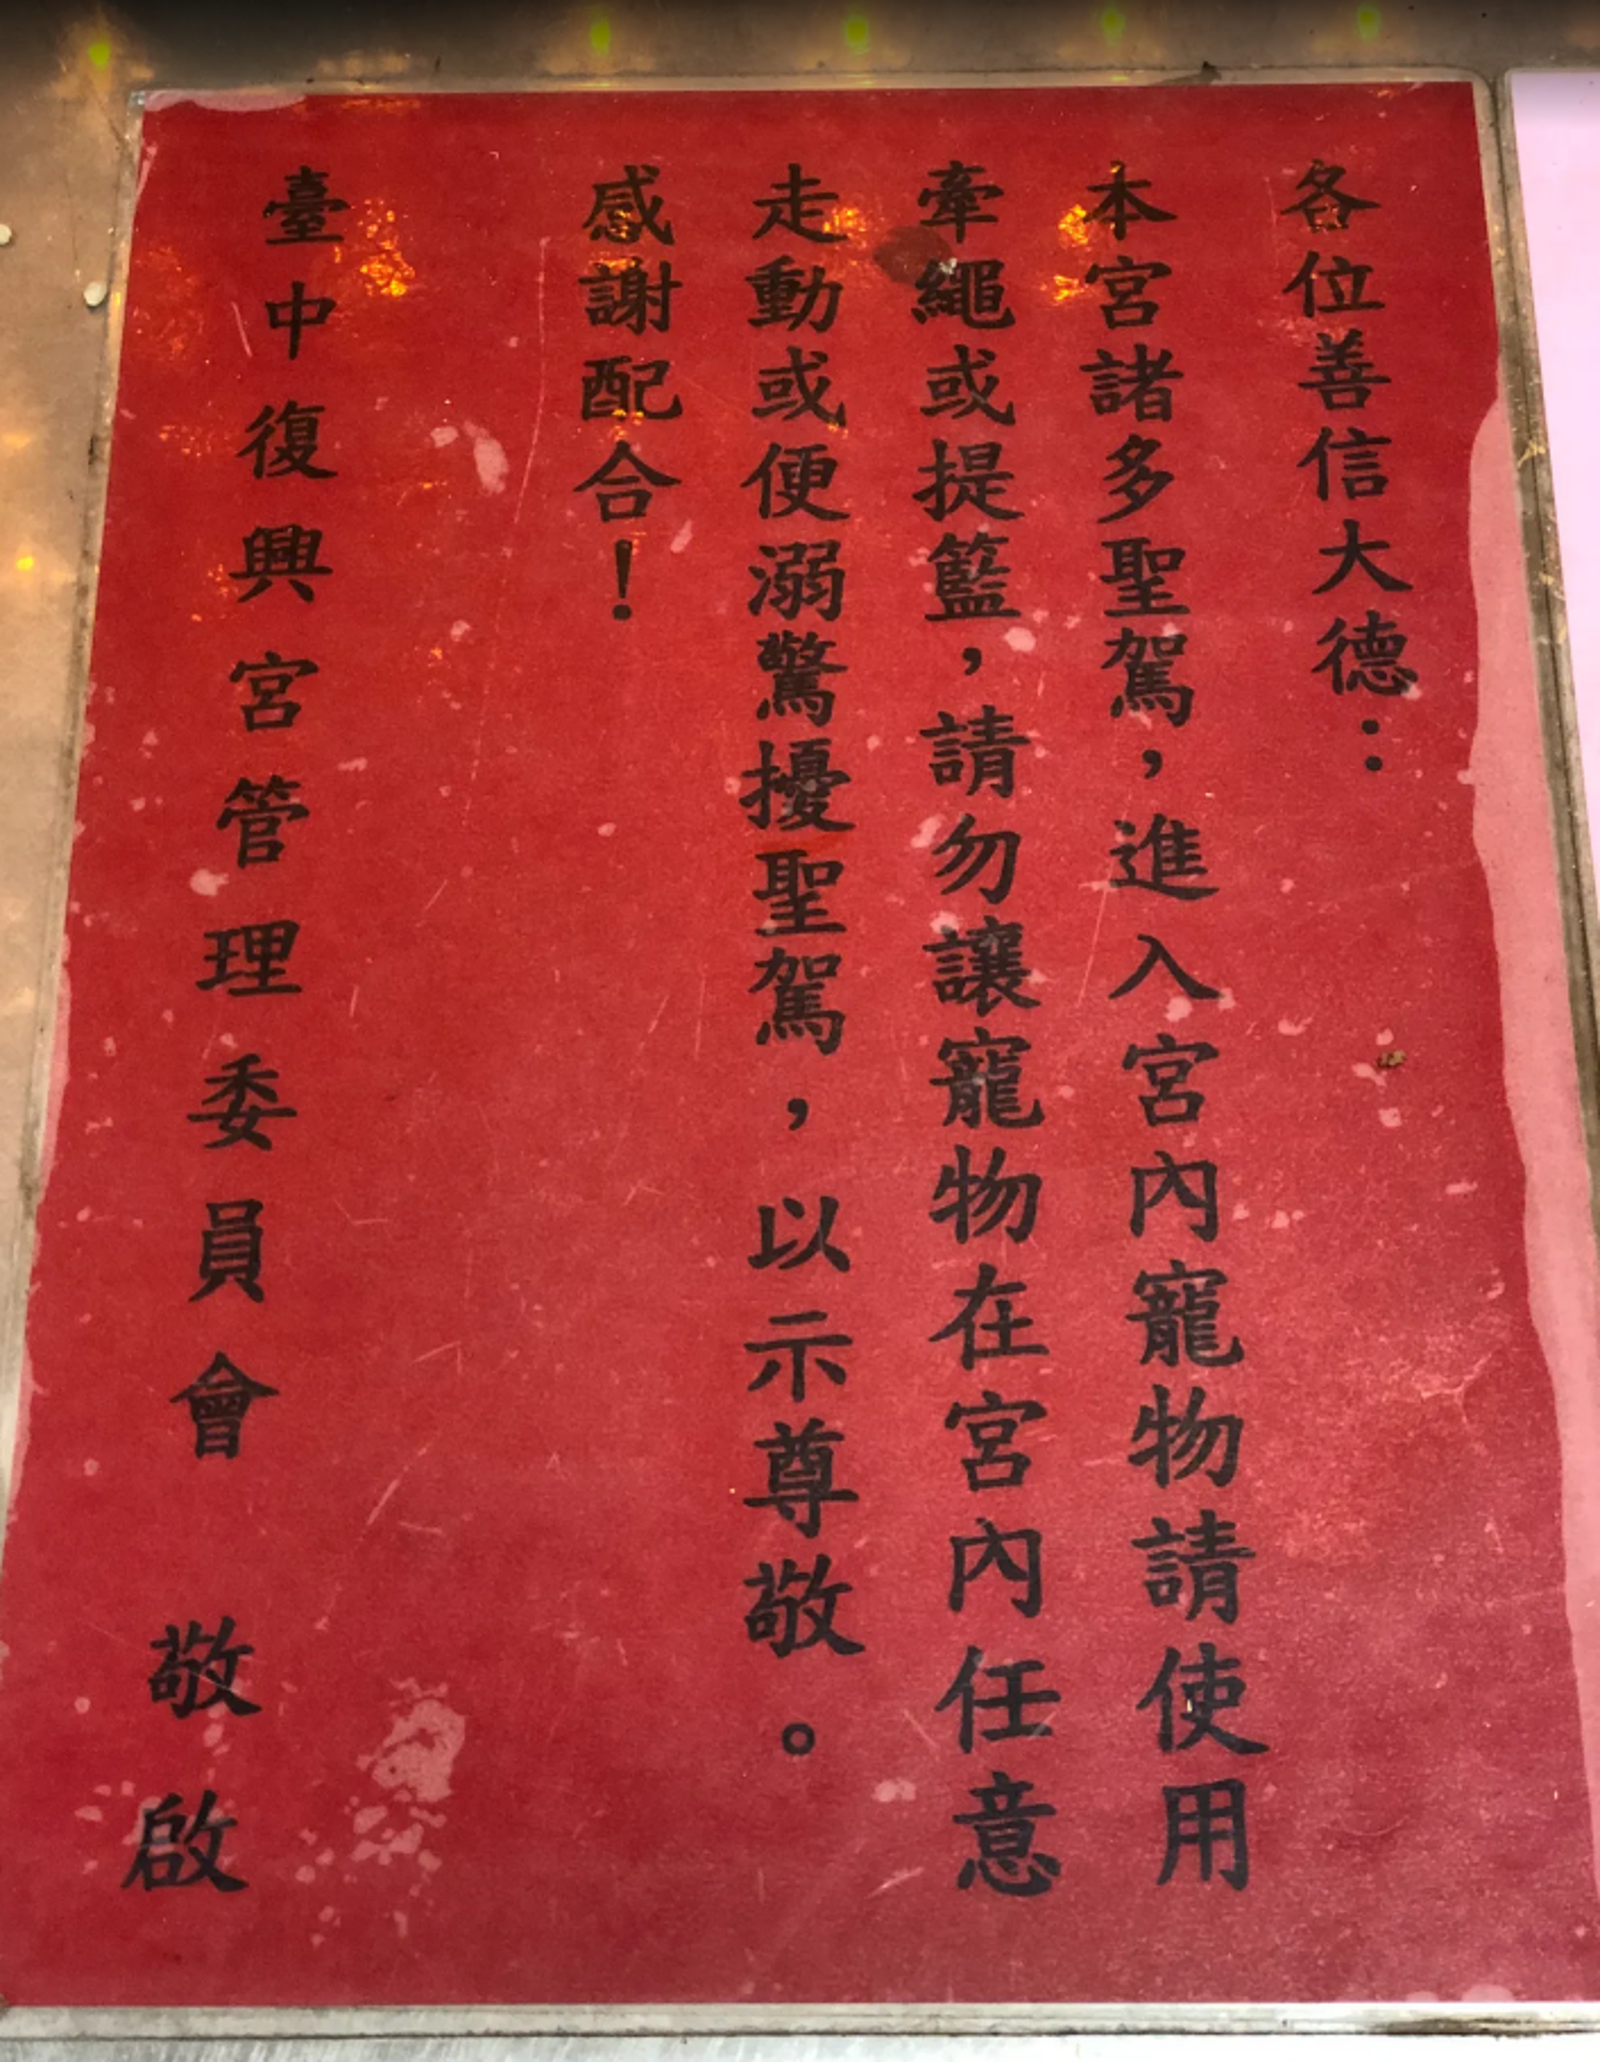 各位善信大德：
本宮諸多聖駕，進入宮內寵物請使用
牽繩或提籃，請勿讓寵物在宮內任意
走動或便溺驚擾聖駕，以示尊敬。
感謝配合！
臺中復興宮管理委員會 敬啟